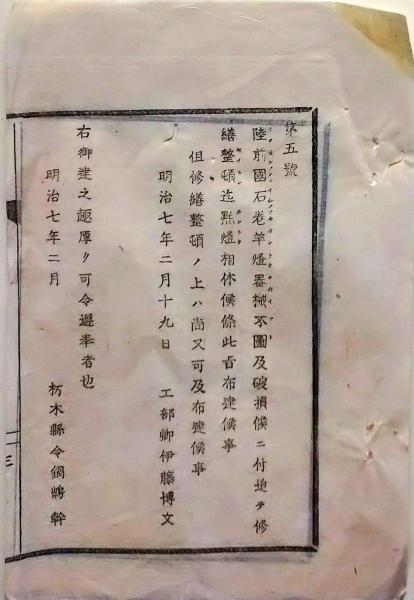 第五號
陸前國石卷竿燈器械不圖及破損候ニ付追テ修
繕整頓迄點燈相休候條此旨布達候事
但修繕整頓ノ上ハ尚又可及布達候事
明治七年二月十九日 工部卿伊藤博文
右御達之趣厚ク可令遵奉者也
明治七年二月 栃木縣令鍋嶋幹